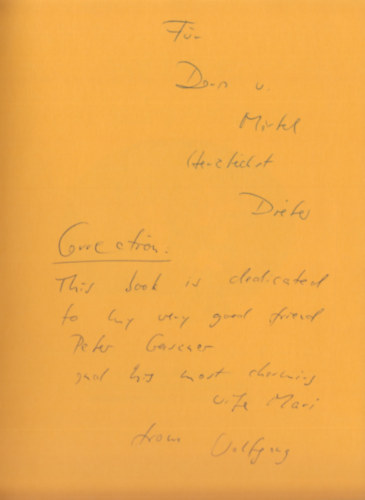 Für
Doris u.
Michel
Herzlichst
Dieter
Correction.
This book is dedicated
to my very good friend
Peter
and his most charming
wife Mari
from Wolfgang